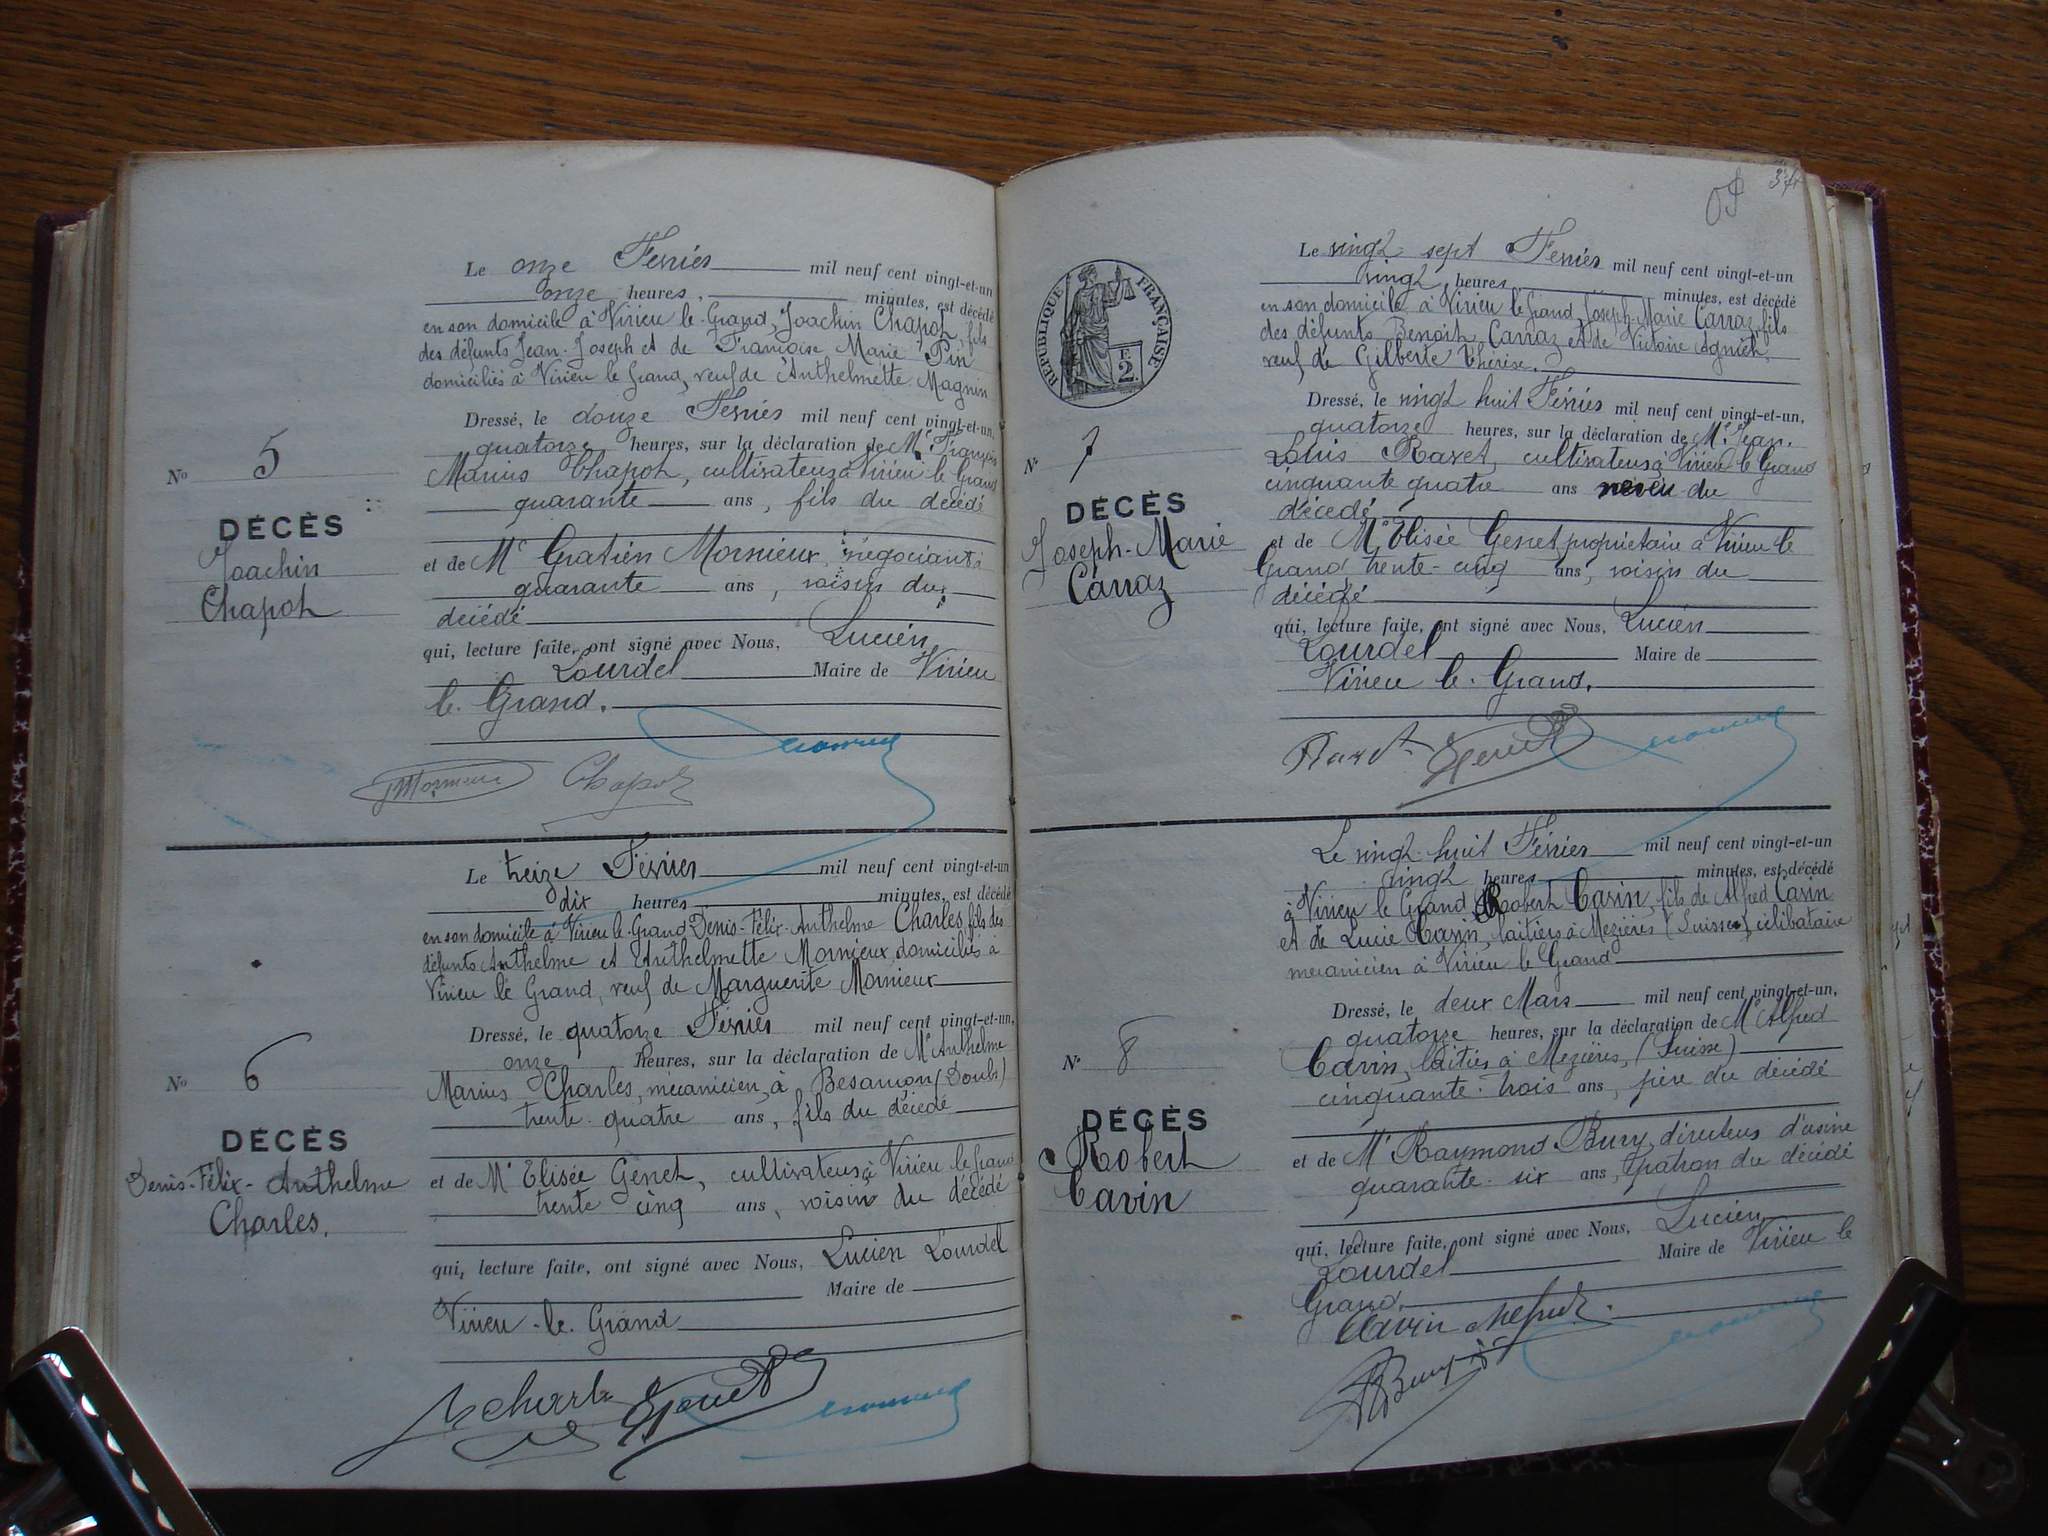 Le onze Février mil neuf cent vingt-et-un
onze heures, minutes, est décédé
en son domicile à Virieu le Grand, Joachin Chapot, fils
des défunts Jean-Joseph et de Françoise Marie Pin
domiciliés à Virieu le Grand, veuf de Anthelmette Magnin
Dressé, le douze Février mil neuf cent vingt-et-un,
quatorze heures, sur la déclaration de Mr François
Marius Chapot, cultivateur à Virieu le Grand
quarante ans, fils du décédé
No 5
DÉCÈS
Joachin
Chapot
et de Mr Gratien Mornieux, négociant
quarante ans, voisin du
décédé
qui, lecture faite, ont signé avec Nous, Lucien
Lourdel Maire de Virieu
le Grand.
Mornieux Chapot
Le treize Février mil neuf cent vingt-et-un
dix heures minutes, est décédé
en son domicile à Virieu le Grand Denis-Félix-Anthelme Charles, fils des
défunts Anthelme et Anthelmette Mornieux, domiciliés à
Virieu le Grand, veuf de Marguerite Mornieux
Dressé, le quatorze Février mil neuf cent vingt-et-un,
onze heures, sur la déclaration de Mr Anthelme
Marius Charles, mecanicien, à Besançon (Doubs)
trente-quatre ans, fils du décédé
No 6
DÉCÈS
Denis-Félix-Anthelme
Charles.
et de Mr Elisée Genet, cultivateur à Virieu le Grand
trente cinq ans, voisin du décédé
qui, lecture faite, ont signé avec Nous, Lucien Lourdel
Maire de
Virieu-le-Grand
Charles Genet
3e fr
RÉPUBLIQUE FRANÇAISE
F.
2.
Le vingt-sept Février mil neuf cent vingt-et-un
vingt heures minutes, est décédé
en son domicile à Virieu le Grand Joseph-Marie Carraz, fils
des défunts Benoît Carraz et de Victoire
veuf de Gilberte Thérèse.
Dressé, le vingt huit Février mil neuf cent vingt-et-un,
quatorze heures, sur la déclaration de Mr Jean-
Louis Ravet, cultivateur à Virieu le Grand
cinquante quatre ans neveu du
décédé
No 7
DÉCÈS
Joseph-Marie
Carraz
et de Mr Elisée Genet propriétaire à Virieu le
Grand, trente-cinq ans, voisin du
décédé
qui, lecture faite, ont signé avec Nous, Lucien
Lourdel Maire de
Virieu le Grand.
Ravet Genet
Le vingt-huit Février mil neuf cent vingt-et-un
vingt heures minutes, est décédé
à Virieu le Grand Robert Cavin, fils de Alfred Cavin
et de Lucie Cavin, laitiers à Mezières (Suisse), célibataire
mecanicien à Virieu le Grand
Dressé, le deux Mars mil neuf cent vingt-et-un,
quatorze heures, sur la déclaration de Mr Alfred
Cavin, laitier à Mezières, (Suisse)
cinquante-trois ans, père du décédé
No 8
DÉCÈS
Robert
Cavin
et de Mr Raymond Bury, directeur d'usine
quarante-six ans, patron du décédé
qui, lecture faite, ont signé avec Nous, Lucien
Lourdel Maire de Virieu le
Grand.
Cavin
Bury